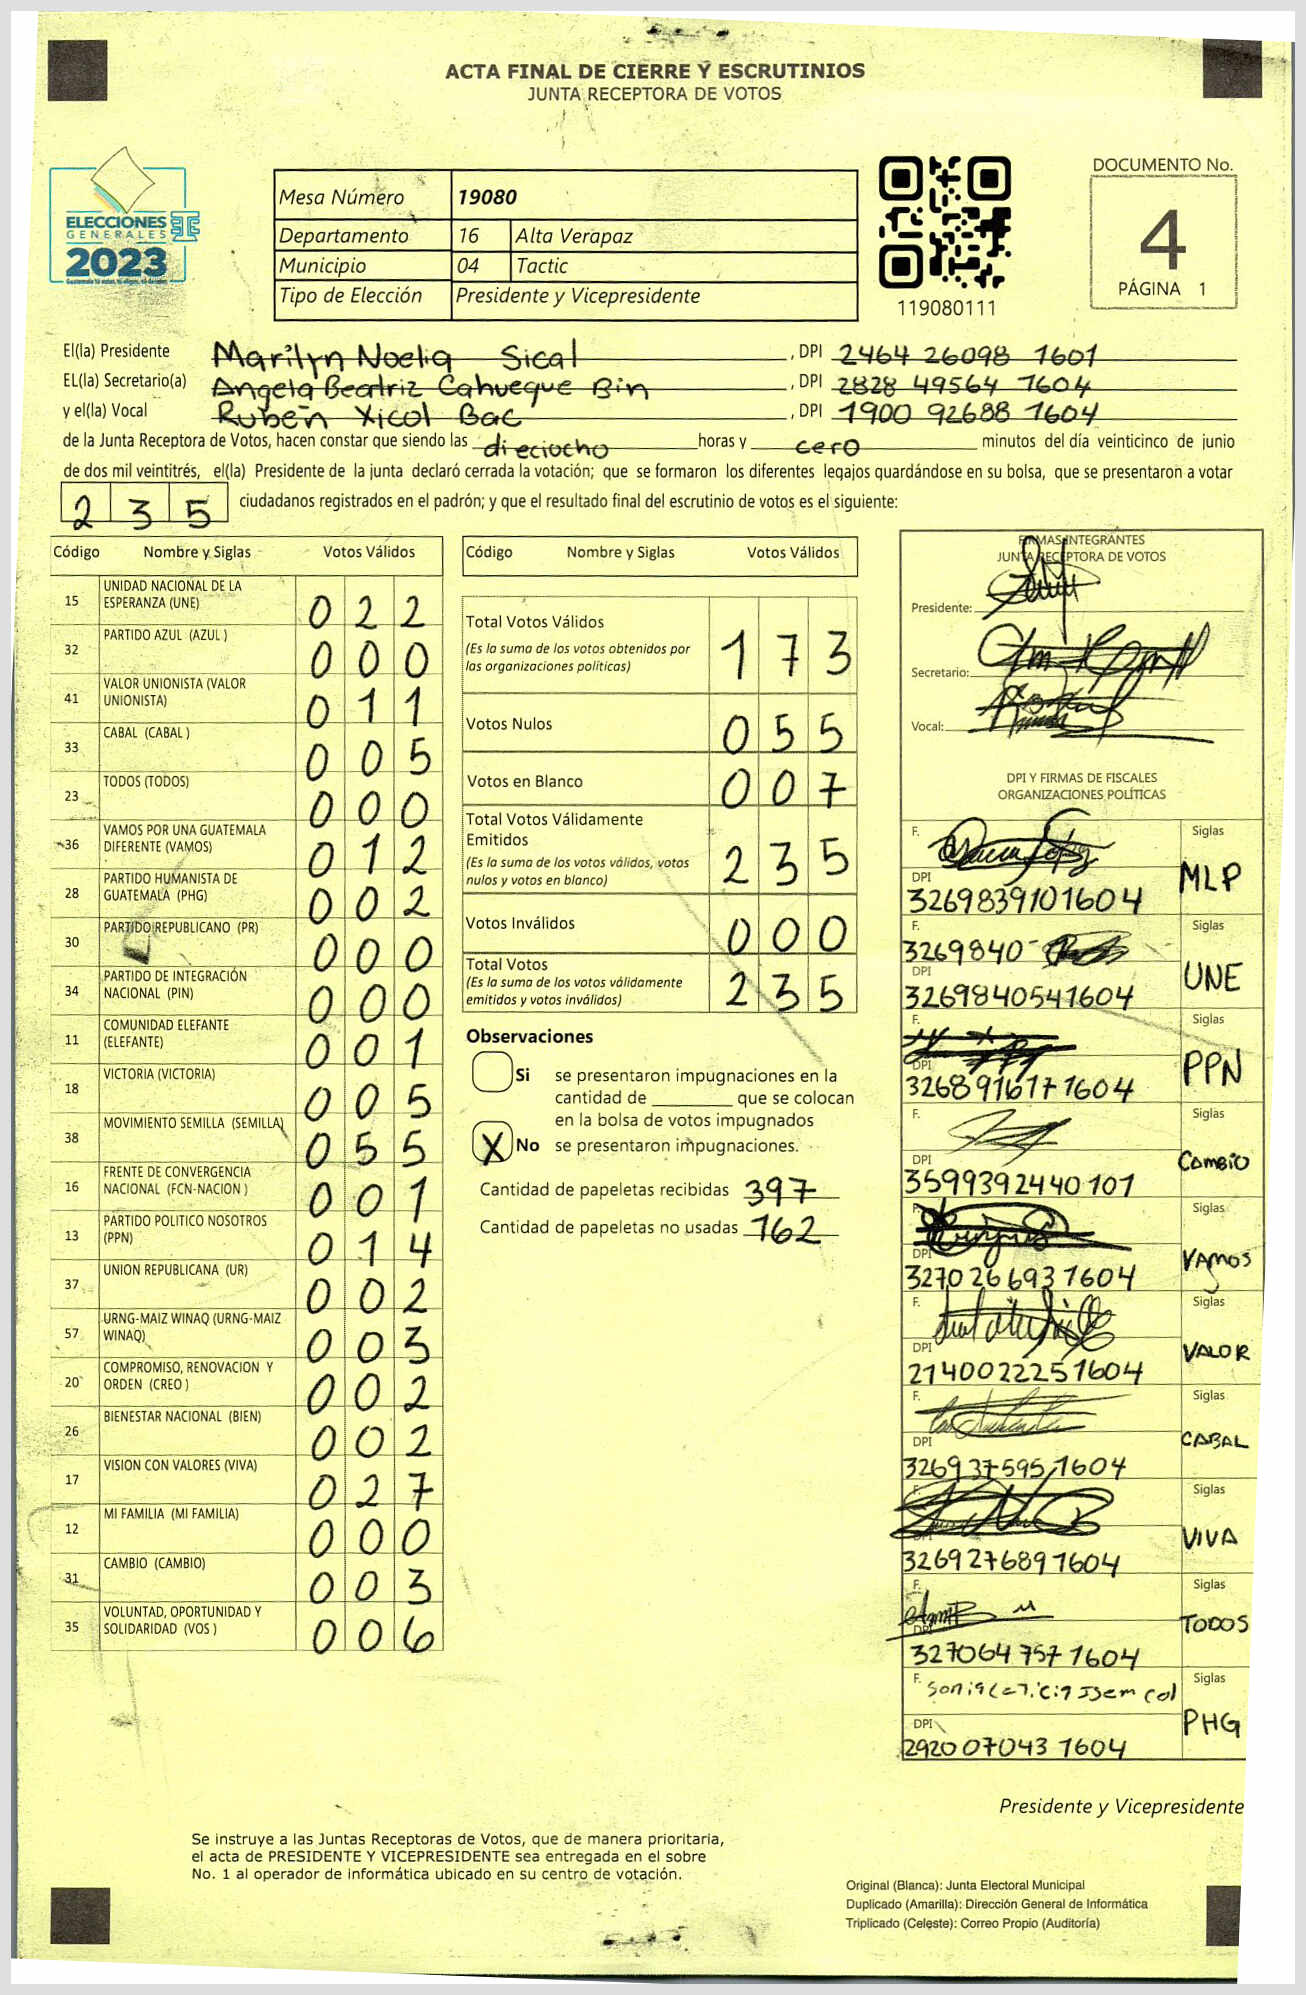 ACTA FINAL DE CIERRE Y ESCRUTINIOS
JUNTA RECEPTORA DE VOTOS
ELECCIONES
GENERALES
2023
Mesa Número 19080
Departamento 16 Alta Verapaz
Municipio 04 Tactic
Tipo de Elección Presidente y Vicepresidente
119080111
DOCUMENTO No.
4
PÁGINA 1
El(la) Presidente Marilyn Noelia Sical , DPI 2464 26098 1601
EL(la) Secretario(a) Angela Beatriz Cahueque Bin , DPI 2828 49564 1604
y el(la) Vocal Rubén Xicol Bac , DPI 1900 92688 1604
de la Junta Receptora de Votos, hacen constar que siendo las dieciocho horas y cero minutos del día veinticinco de junio
de dos mil veintitrés, el(la) Presidente de la junta declaró cerrada la votación; que se formaron los diferentes legajos guardándose en su bolsa, que se presentaron a votar
2 3 5 ciudadanos registrados en el padrón; y que el resultado final del escrutinio de votos es el siguiente:
Código Nombre y Siglas Votos Válidos
15 UNIDAD NACIONAL DE LA ESPERANZA (UNE) 0 2 2
32 PARTIDO AZUL (AZUL ) 0 0 0
41 VALOR UNIONISTA (VALOR UNIONISTA) 0 1 1
33 CABAL (CABAL ) 0 0 5
23 TODOS (TODOS) 0 0 0
36 VAMOS POR UNA GUATEMALA DIFERENTE (VAMOS) 0 1 2
28 PARTIDO HUMANISTA DE GUATEMALA (PHG) 0 0 2
30 PARTIDO REPUBLICANO (PR) 0 0 0
34 PARTIDO DE INTEGRACIÓN NACIONAL (PIN) 0 0 0
11 COMUNIDAD ELEFANTE (ELEFANTE) 0 0 1
18 VICTORIA (VICTORIA) 0 0 5
38 MOVIMIENTO SEMILLA (SEMILLA) 0 5 5
16 FRENTE DE CONVERGENCIA NACIONAL (FCN-NACION ) 0 0 1
13 PARTIDO POLITICO NOSOTROS (PPN) 0 1 4
37 UNION REPUBLICANA (UR) 0 0 2
57 URNG-MAIZ WINAQ (URNG-MAIZ WINAQ) 0 0 3
20 COMPROMISO, RENOVACION Y ORDEN (CREO ) 0 0 2
26 BIENESTAR NACIONAL (BIEN) 0 0 2
17 VISION CON VALORES (VIVA) 0 2 7
12 MI FAMILIA (MI FAMILIA) 0 0 0
31 CAMBIO (CAMBIO) 0 0 3
35 VOLUNTAD, OPORTUNIDAD Y SOLIDARIDAD (VOS ) 0 0 6
Código Nombre y Siglas Votos Válidos
Total Votos Válidos 1 7 3
(Es la suma de los votos obtenidos por
las organizaciones políticas)
Votos Nulos 0 5 5
Votos en Blanco 0 0 7
Total Votos Válidamente
Emitidos 2 3 5
(Es la suma de los votos válidos, votos
nulos y votos en blanco)
Votos Inválidos 0 0 0
Total Votos 2 3 5
(Es la suma de los votos válidamente
emitidos y votos inválidos)
Observaciones
Si se presentaron impugnaciones en la
cantidad de ________ que se colocan
en la bolsa de votos impugnados
X No se presentaron impugnaciones.
Cantidad de papeletas recibidas 397
Cantidad de papeletas no usadas 162
FIRMAS INTEGRANTES
JUNTA RECEPTORA DE VOTOS
Presidente:
Secretario:
Vocal:
DPI Y FIRMAS DE FISCALES
ORGANIZACIONES POLÍTICAS
F. Siglas
DPI MLP
3269839101604
F. Siglas
3269840-
DPI UNE
3269840541604
F. Siglas
DPI PPN
3268916171604
F. Siglas
DPI Cambio
3599392440101
F. Siglas
DPI VAMOS
3270266931604
F. Siglas
DPI VALOR
2140022251604
F. Siglas
DPI CABAL
3269375951604
F. Siglas
DPI VIVA
3269276891604
F. Siglas
DPI TODOS
3270647571604
F. Siglas
DPI PHG
2920070431604
Presidente y Vicepresidente
Se instruye a las Juntas Receptoras de Votos, que de manera prioritaria,
el acta de PRESIDENTE Y VICEPRESIDENTE sea entregada en el sobre
No. 1 al operador de informática ubicado en su centro de votación.
Original (Blanca): Junta Electoral Municipal
Duplicado (Amarilla): Dirección General de Informática
Triplicado (Celeste): Correo Propio (Auditoría)